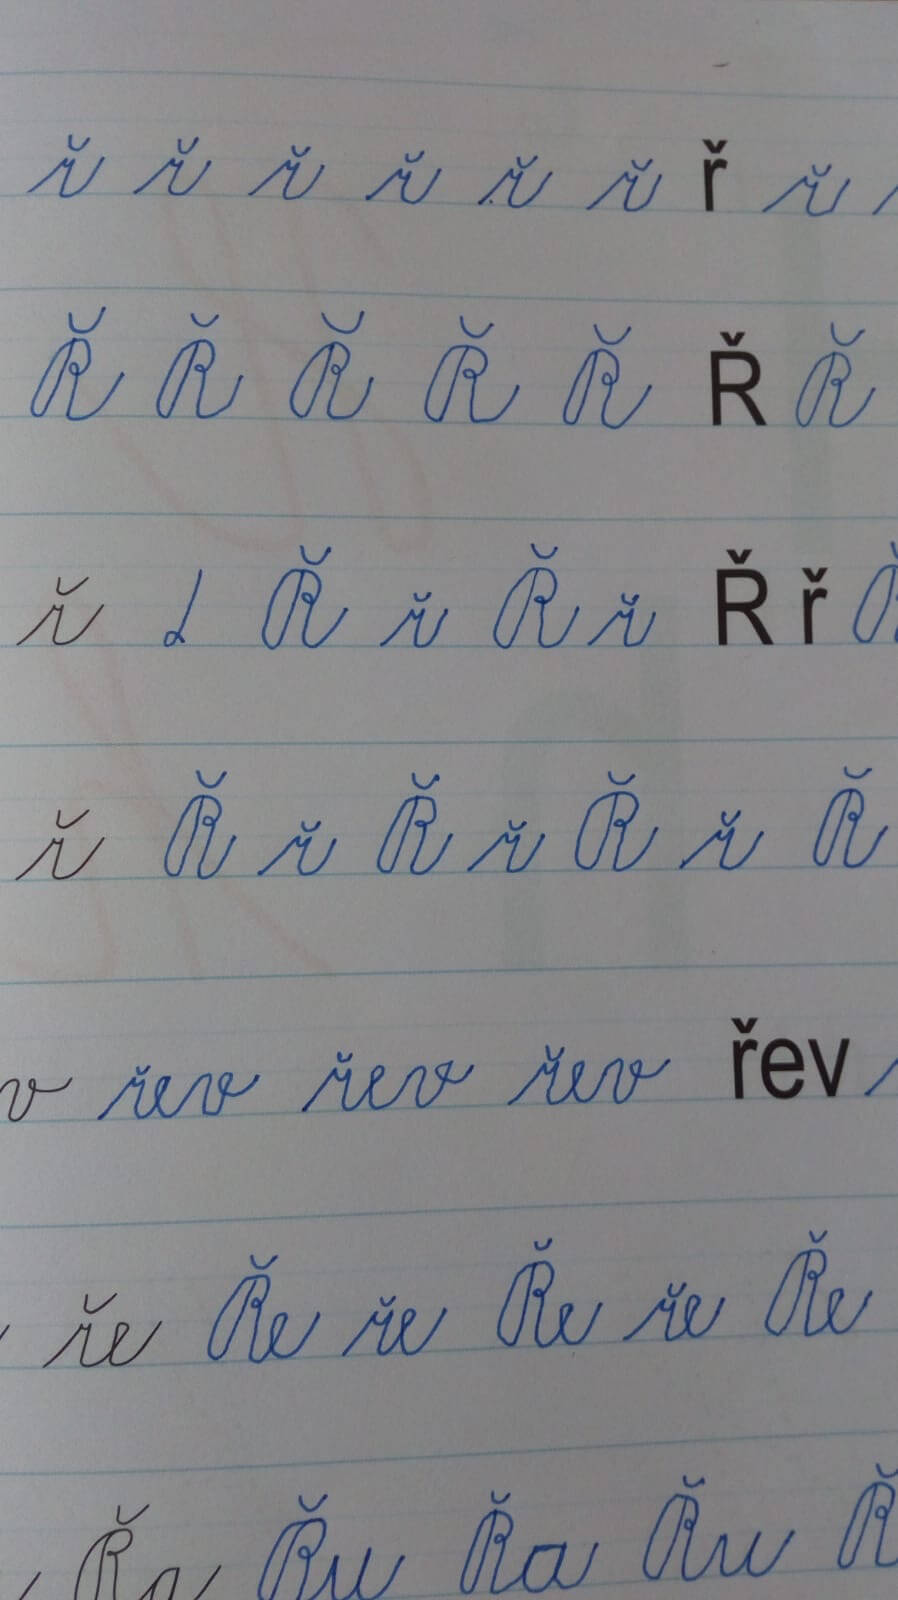 ř ř ř ř ř ř ř ř
Ř Ř Ř Ř Ř Ř Ř
ř Ř ř Ř ř Ř ř Ř
ř Ř ř Ř ř Ř ř Ř
v řev řev řev řev
ře Ře ře Ře ře Ře
Řa Řu Řa Řu Ř